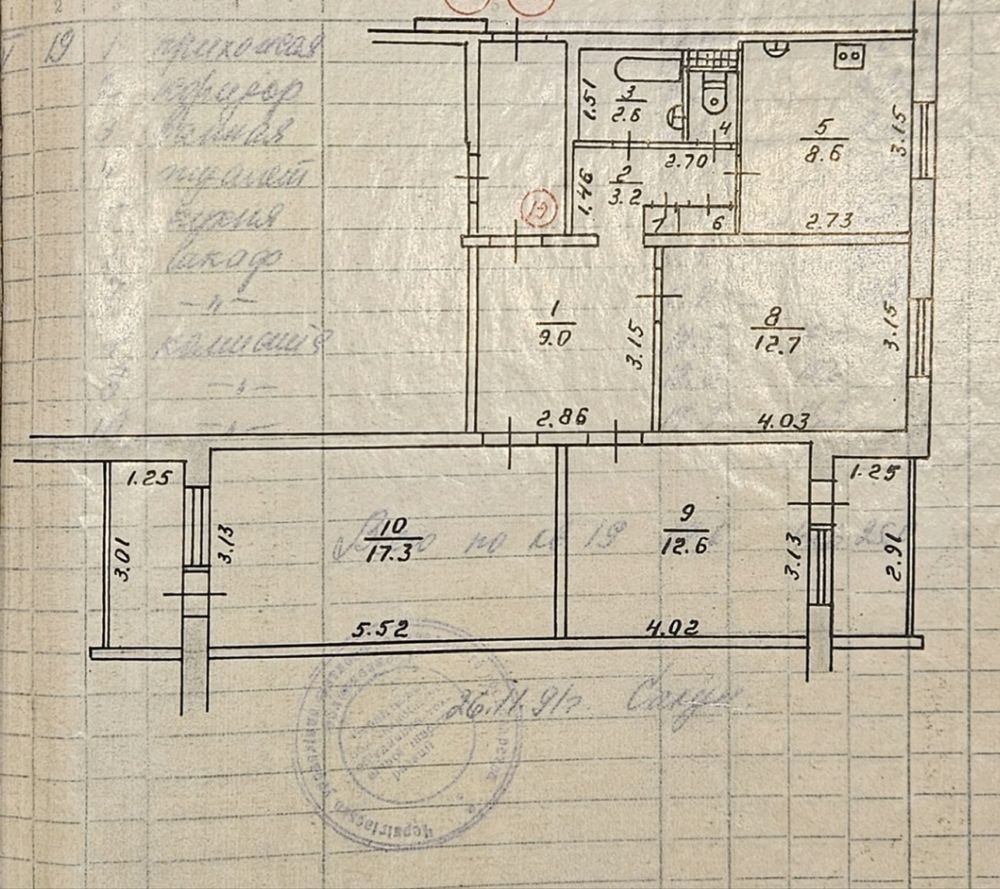 19 1 прихожая
коридор
3 ванная
4 туалет
кухня
шкаф
—"—
комната
—"—
—"—
1.51
3
2.6
4
5
8.6
3.15
2.70
1.46
2
3.2
19
7
6
2.73
1
9.0
3.15
8
12.7
3.15
2.86
4.03
1.25
1.25
10
17.3
3.01
3.13
по кв 19
9
12.6
3.13
2.91
5.52
4.02
26.11.91г.